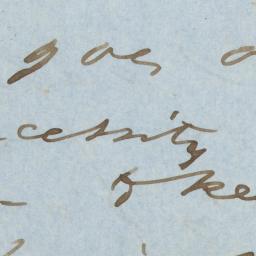 goes o
cessity
to ke